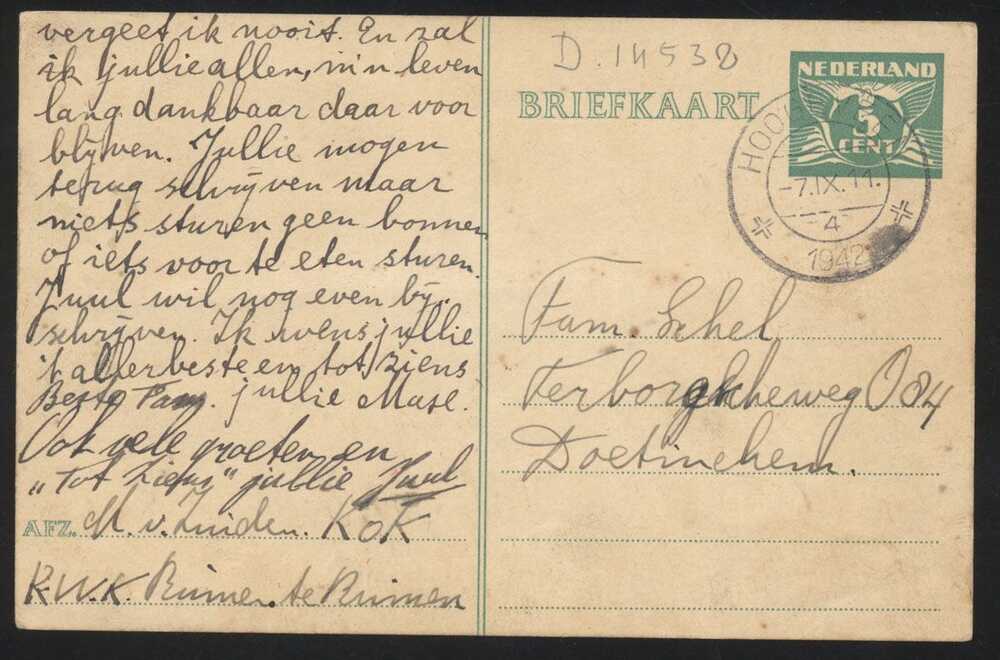 vergeet ik nooit. En zal
ik jullie allen, m'n leven
lang dankbaar daar voor
blijven. Jullie mogen
terug schrijven maar
niets sturen geen bonnen
of iets voor te eten sturen.
Juul wil nog even bij
schrijven. Ik wens jullie
't allerbeste en tot ziens
Beste Fam. jullie Max.
Ook vele groeten en
"Tot Ziens" jullie Juul
AFZ. M. v. Linden. KoK
R.W.K. te Ruinen
D. 14538
BRIEFKAART
NEDERLAND
5
CENT
-7.IX.11.
4
1942
Fam. Schel
Terborgscheweg O 84
Doetinchem.